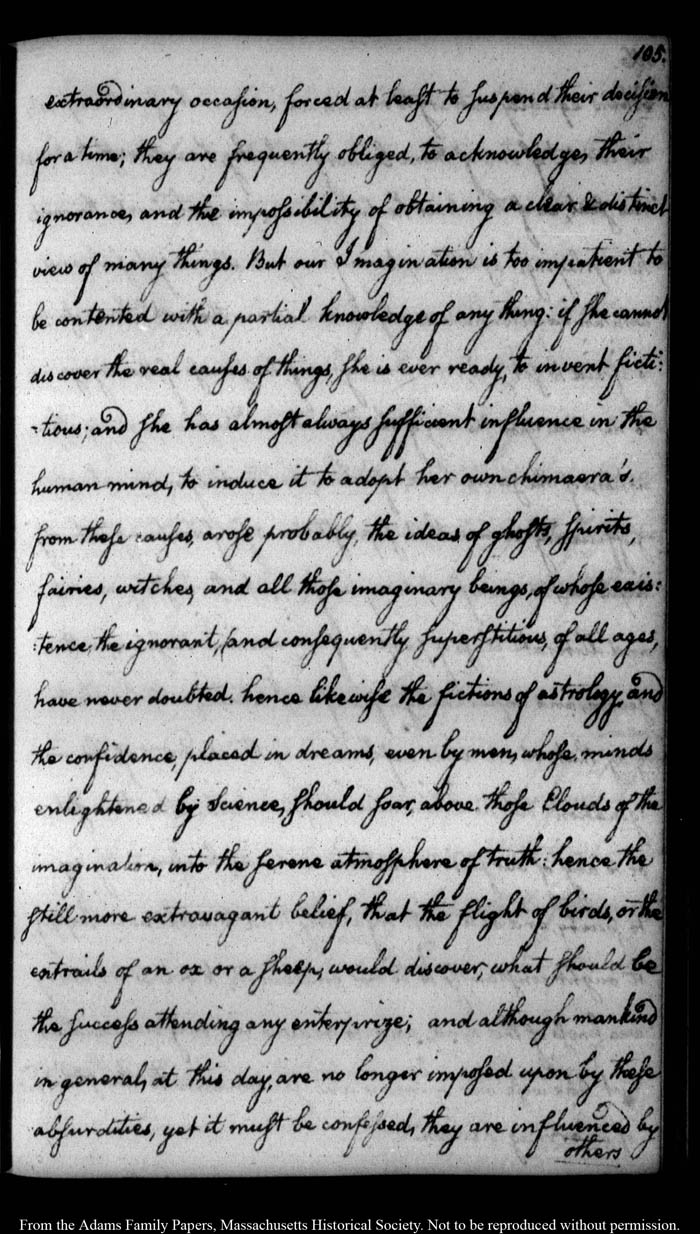 105.
extraordinary occasion, forced at least to suspend their decision
for a time; they are frequently obliged, to acknowledge, their
ignorance, and the impossibility of obtaining a clear & distinct
view of many things. But our Imagination is too impatient to
be contented with a partial knowledge of any thing: if she cannot
discover the real causes of things, she is ever ready, to invent ficti:
:tious; and she has almost always sufficient influence in the
human mind, to induce it to adopt her own chimaera's.
from these causes, arose probably, the ideas of ghosts, spirits,
fairies, witches, and all those imaginary beings, of whose exis:
:tence, the ignorant, (and consequently superstitious, of all ages,
have never doubted. hence likewise the fictions of astrology, and
the confidence, placed in dreams, even by men, whose minds
enlightened by Science, should soar, above those Clouds of the
imagination, into the serene atmosphere of truth: hence the
still more extravagant belief, that the flight of birds, or the
entrails of an ox or a sheep, would discover, what should be
the success attending any enterprize; and although mankind
in general, at this day, are no longer imposed upon by these
absurdities, yet it must be confessed, they are influenced by
others
From the Adams Family Papers, Massachusetts Historical Society. Not to be reproduced without permission.